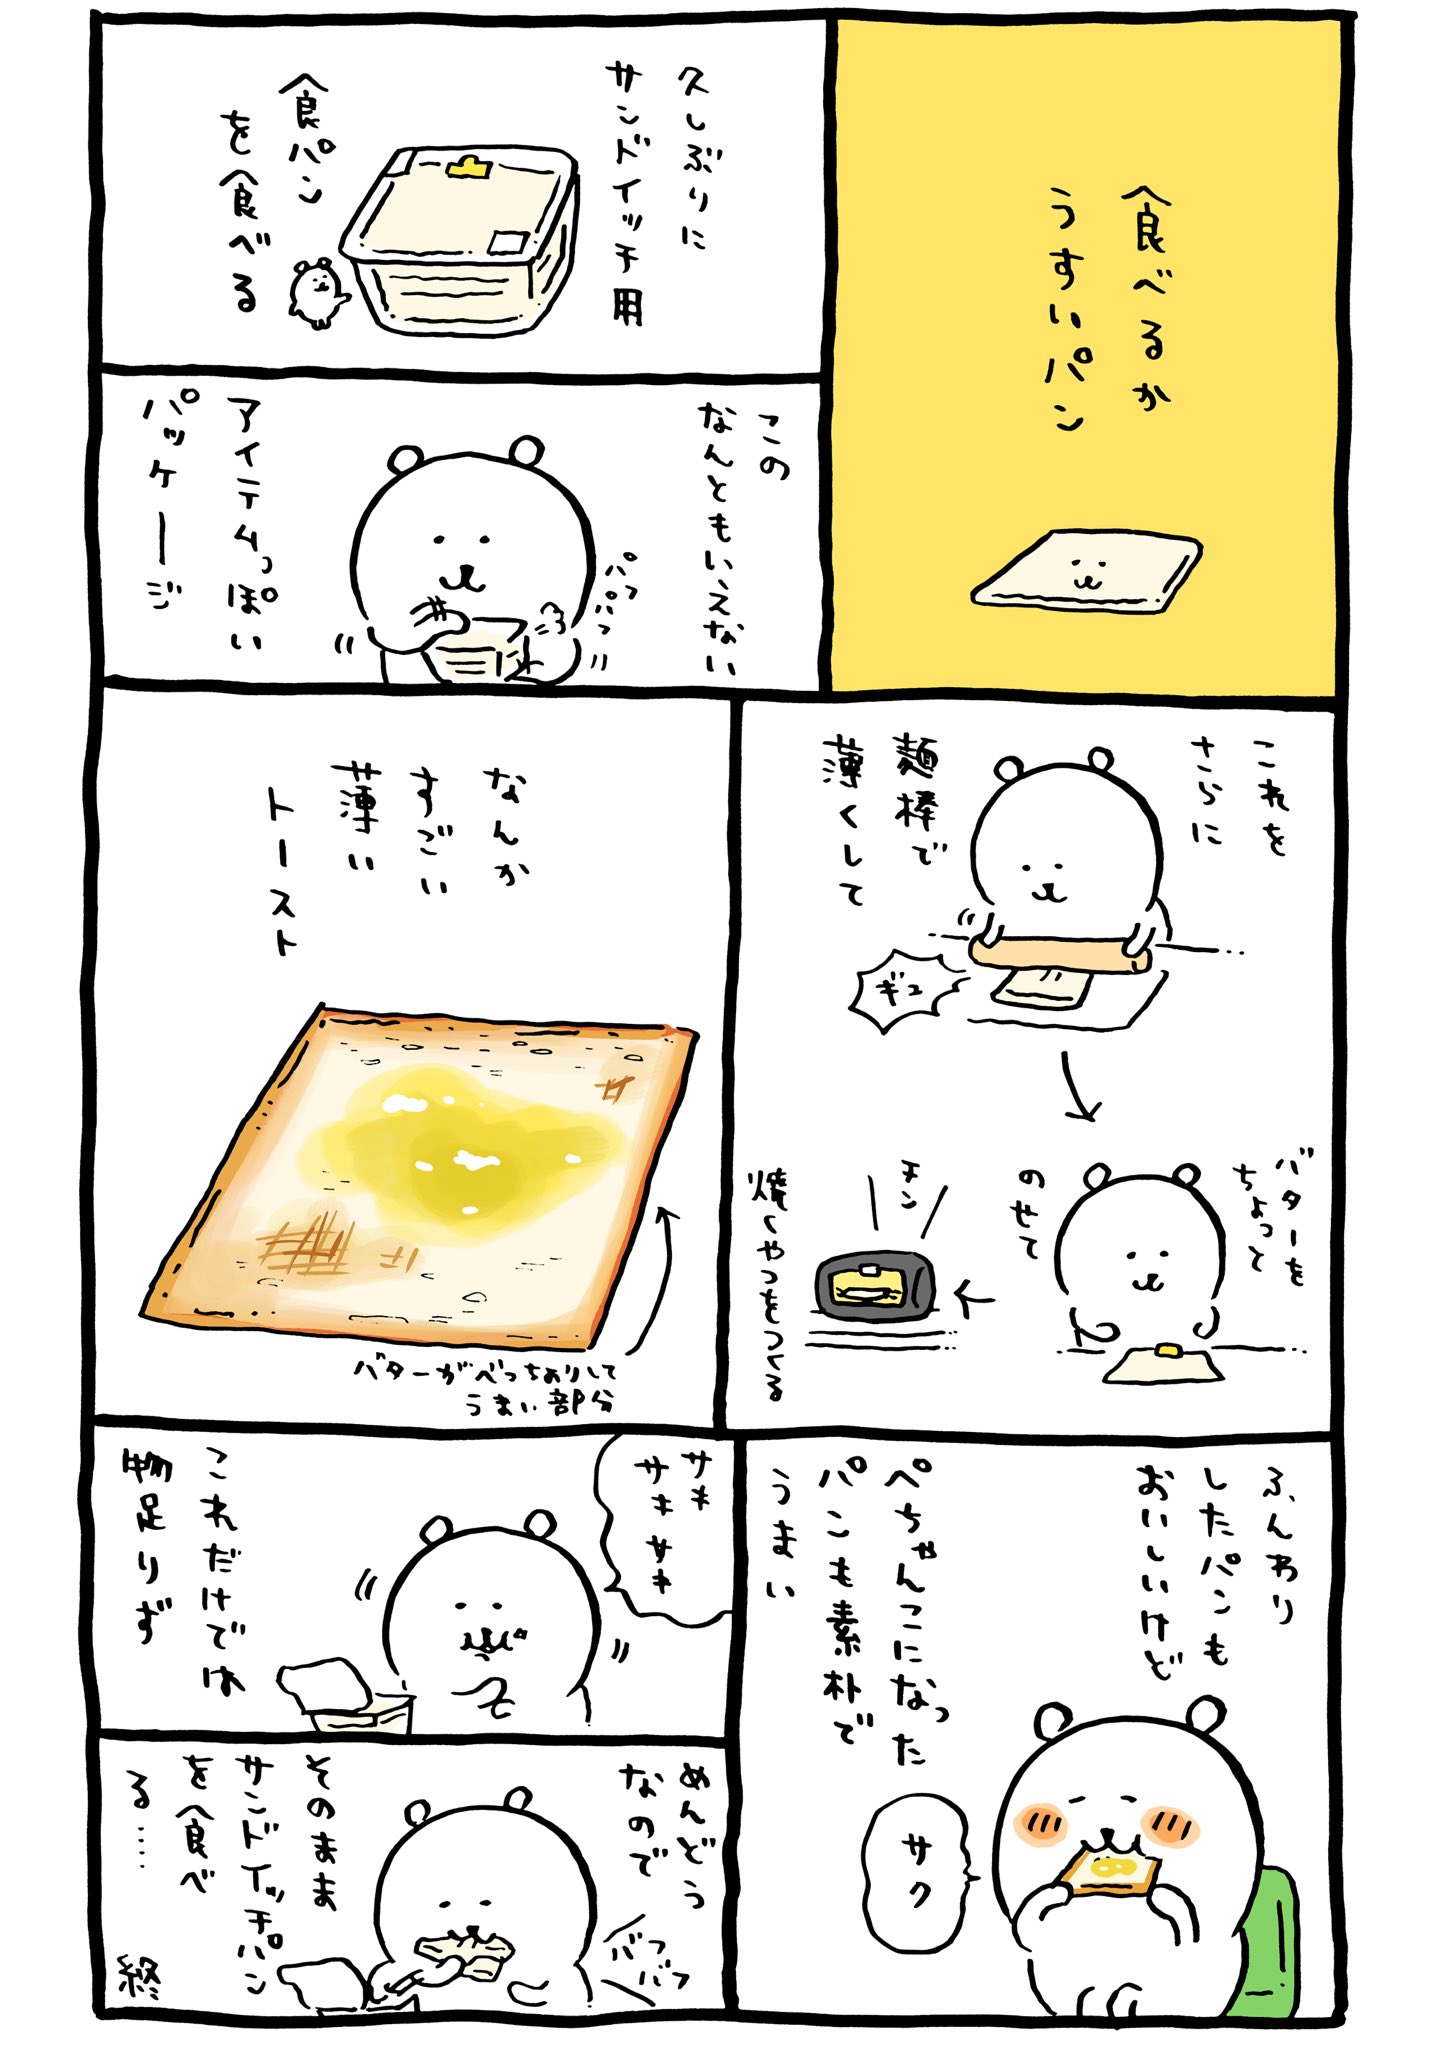 食べるか
うすいパン
久しぶりに
サンドイッチ用
食パン
を食べる
この
なんともいえない
パフ
パフ
アイテムっぽい
パッケージ
これを
さらに
麺棒で
薄くして
ギュ
バターを
ちょっと
のせて
チン
焼くやつをつくる
なんか
すごい
薄い
トースト
バターがべっちょりして
うまい部分
ふんわり
したパンも
おいしいけど
ぺちゃんこになった
パンも素朴で
うまい
サク
サキ
サキサキ
これだけでは
物足りず
めんどう
なので
バフ
バフ
そのまま
サンドイッチパン
を食べ
る……
終